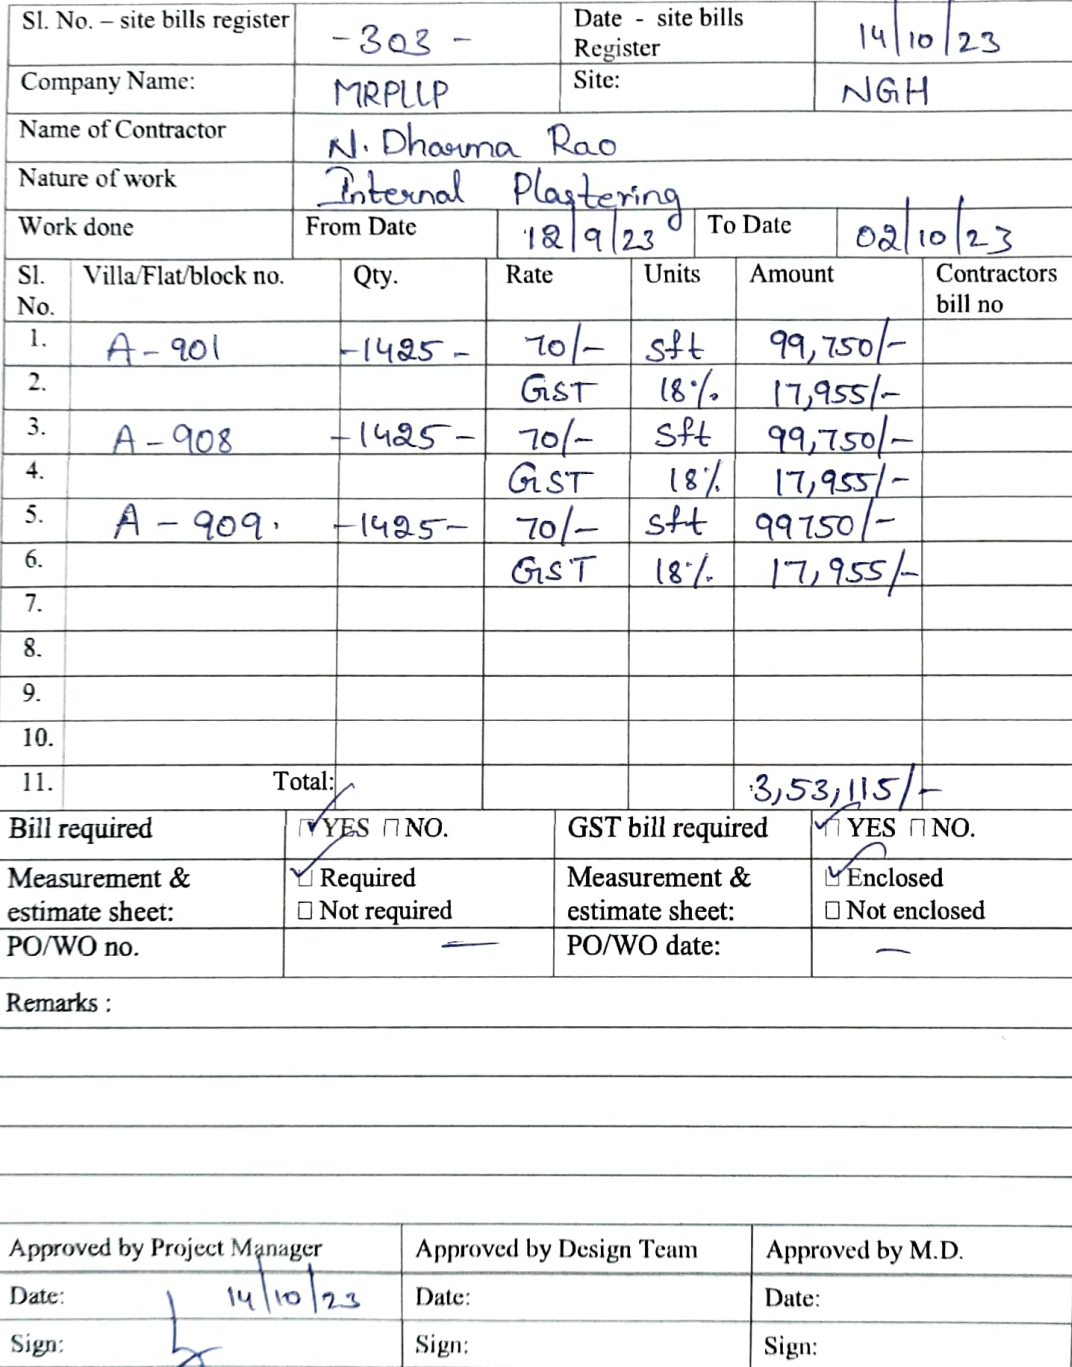 Sl. No. – site bills register -303- Date - site bills Register 14/10/23
Company Name: MRPLLP Site: NGH
Name of Contractor N. Dharma Rao
Nature of work Internal Plastering
Work done From Date 18/9/23 To Date 02/10/23
Sl. No. Villa/Flat/block no. Qty. Rate Units Amount Contractors bill no
1. A-901 -1425- 70/- sft 99,750/-
2. GST 18% 17,955/-
3. A-908 -1425- 70/- sft 99,750/-
4. GST 18% 17,955/-
5. A-909. -1425- 70/- sft 99750/-
6. GST 18% 17,955/-
7.
8.
9.
10.
11. Total: 3,53,115/-
Bill required YES NO. GST bill required YES NO.
Measurement & estimate sheet: Required Not required Measurement & estimate sheet: Enclosed Not enclosed
PO/WO no. — PO/WO date: —
Remarks :
Approved by Project Manager Approved by Design Team Approved by M.D.
Date: 14/10/23 Date: Date:
Sign: Sign: Sign: